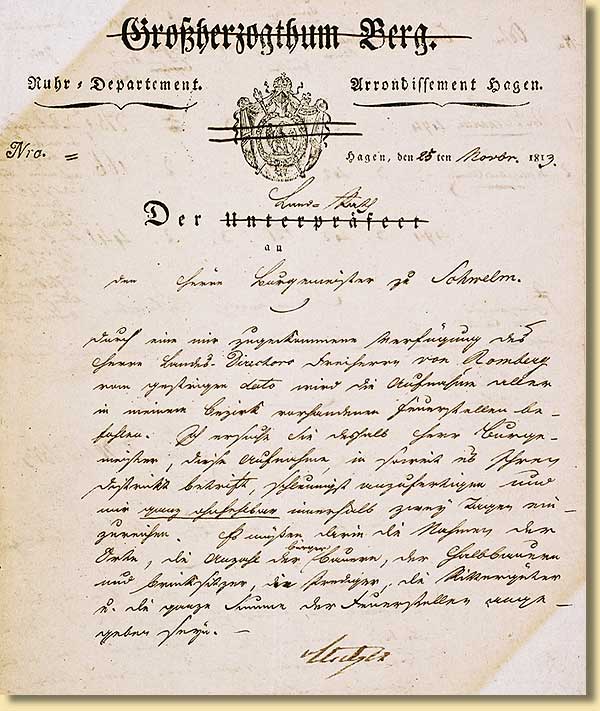 Großherzogthum Berg.
Ruhr-Departement. Arrondissement Hagen.
Nro. Hagen, den 25ten Novbr. 1813.
Land-Rath
Der Unterpräfect
an
den Herrn Burgemeister zu Schwelm.
Durch eine mir zugekommene Verfügung des
Herrn Landes-Directors Freiherrn von Romberg
vom gestrigen dato wird die Aufnahme aller
in meinem Bezirk vorhandenen Feuerstellen be-
fohlen. Ich ersuche Sie deshalb Herr Burge-
meister, diese Aufnahme, in soweit es Ihren
District betrift, schleunigst anzufertigen und
mir ganz ohnfehlbar innerhalb zwey Tagen ein-
zureichen. Es müßen darin die Nahmen der
Orte, die Anzahl der Bürger Bauern, der Halbbauern
und Brinksitzer, der Prediger, die Rittergüter
u. die ganze Summe der Feuerstellen ange-
geben seyn. —